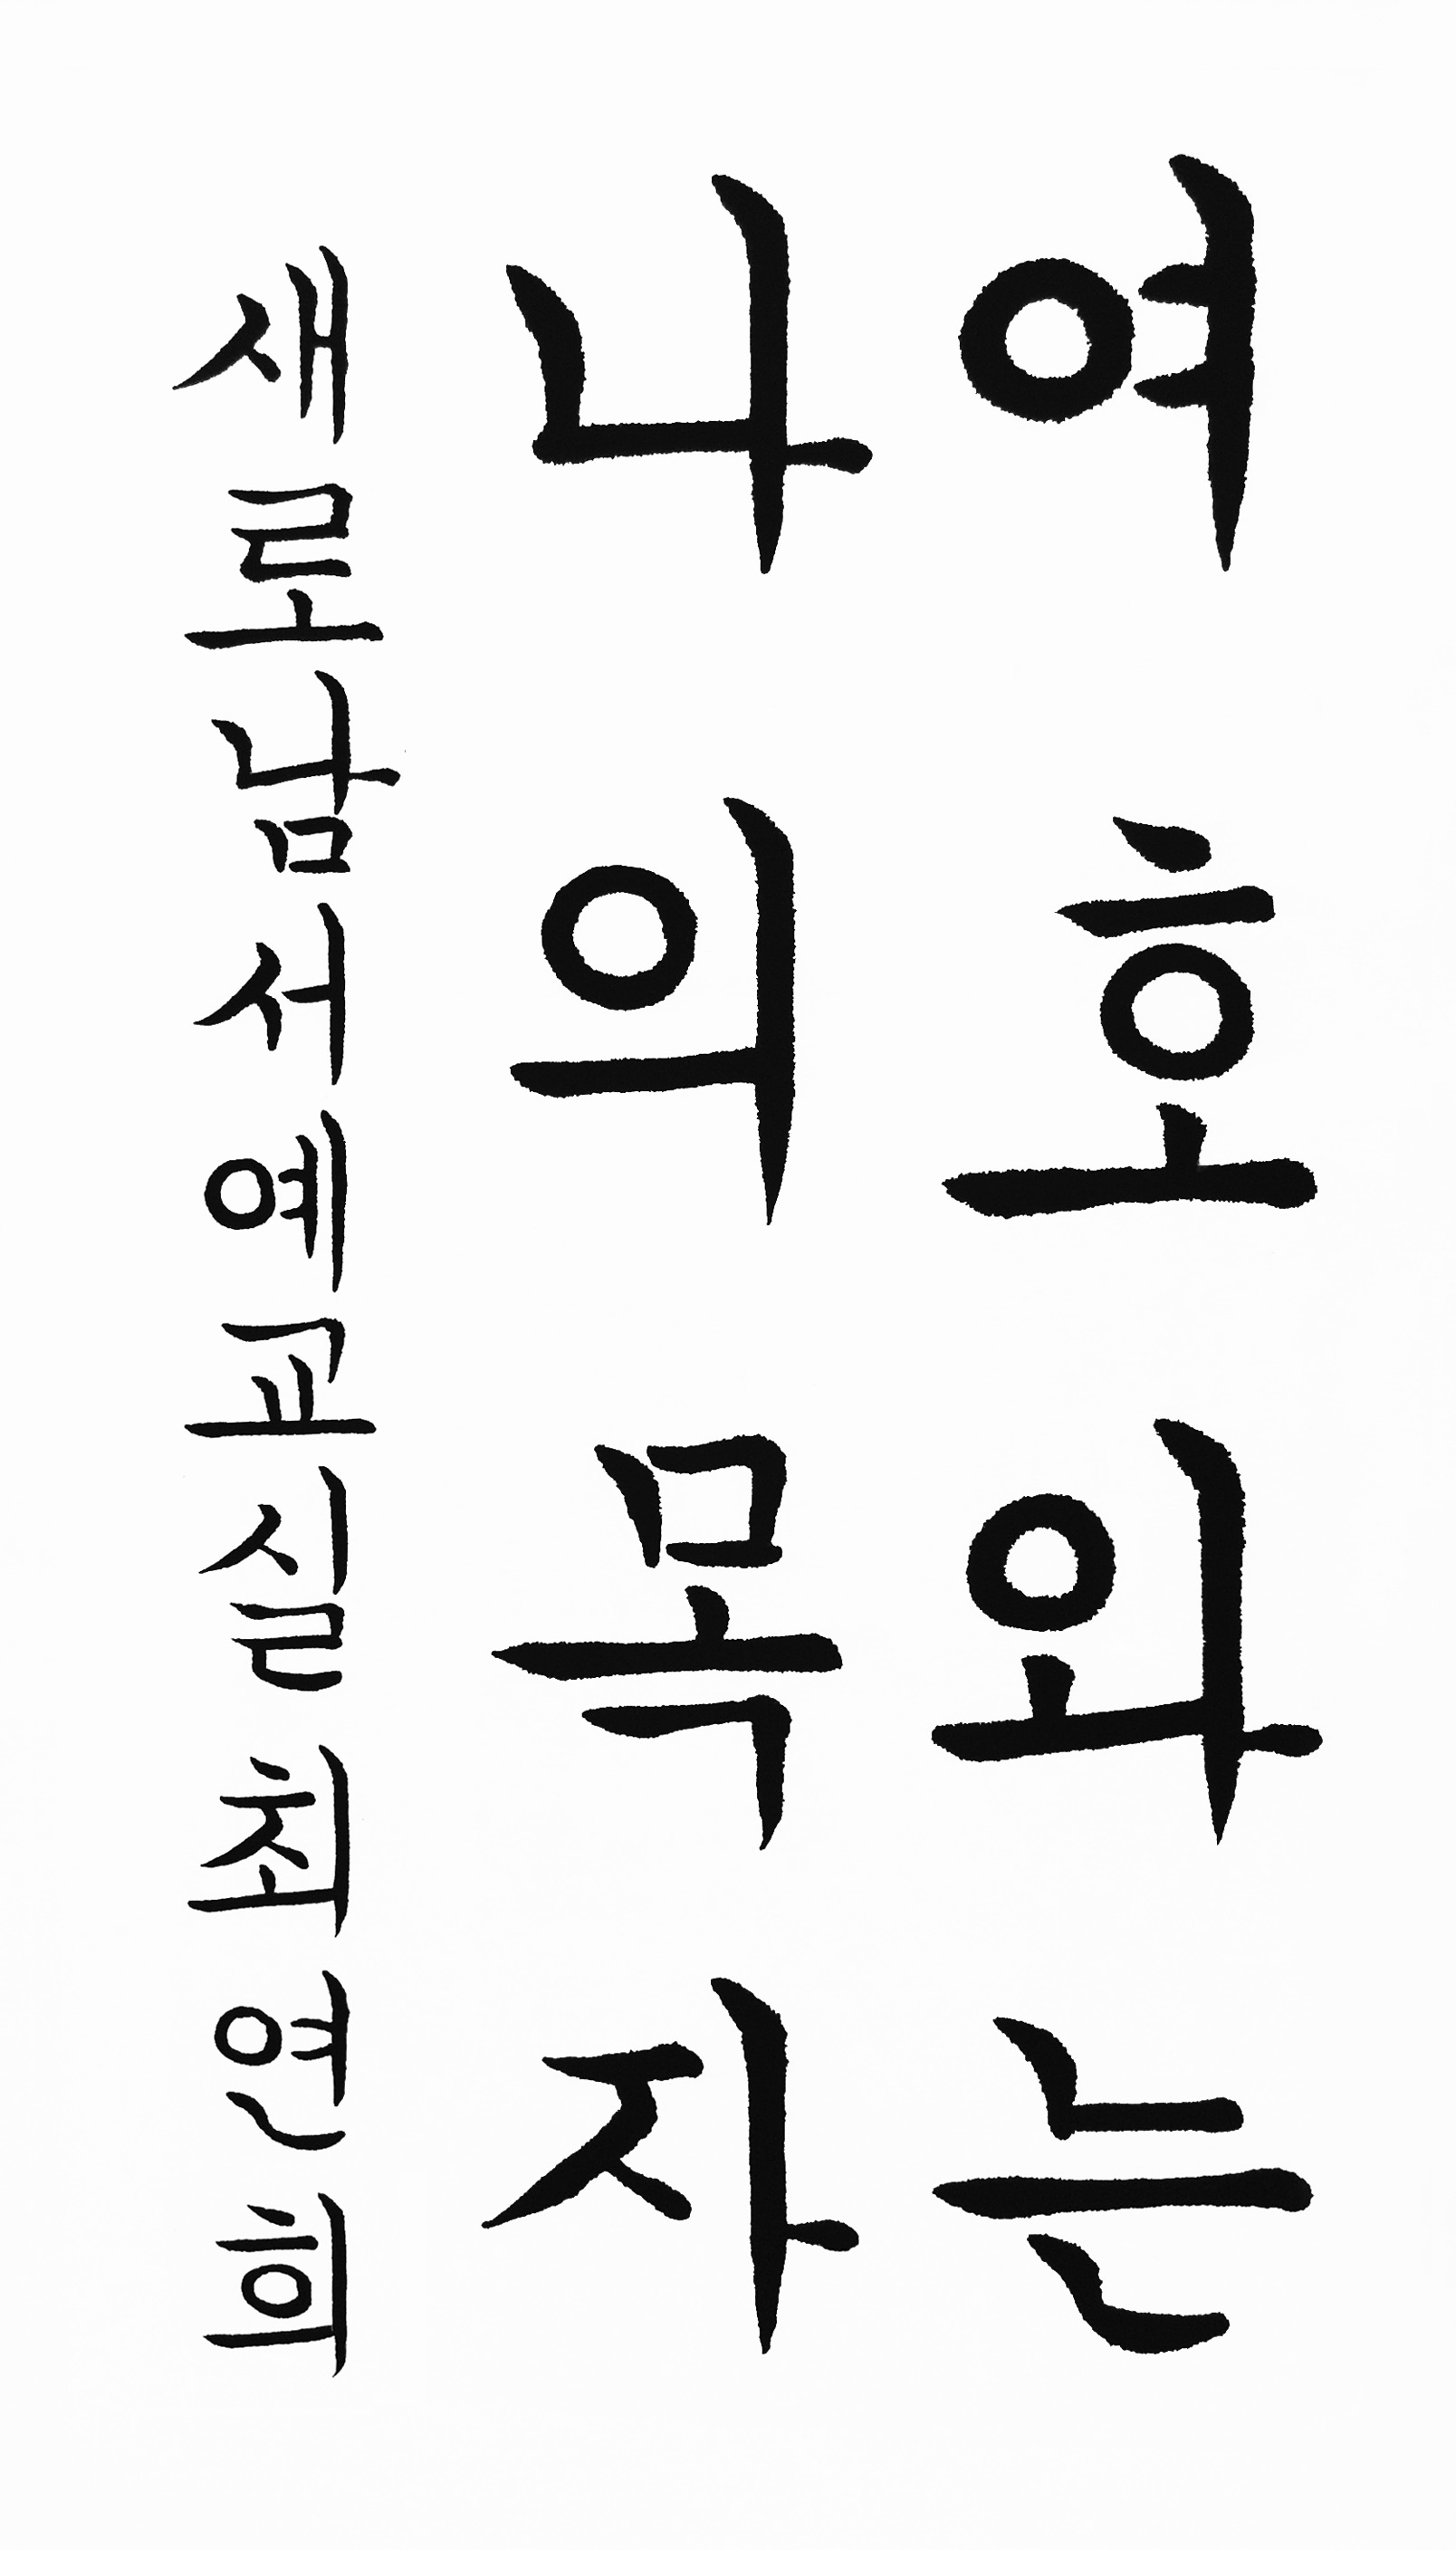 여호와는
나의목자
새로남서예교실최연희